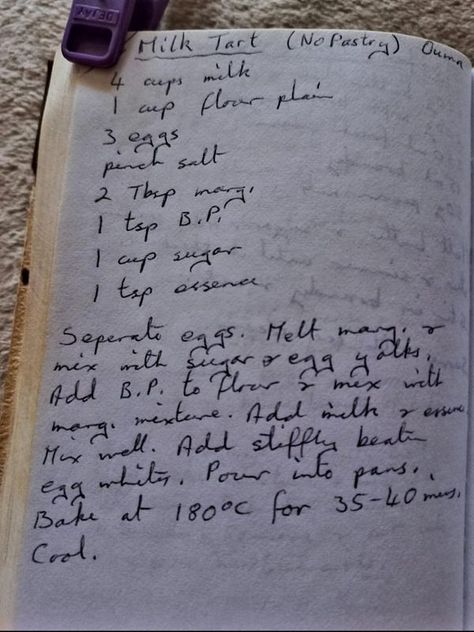 DEJAY
Milk Tart (No Pastry) Ouma
4 cups milk
1 cup flour plain
3 eggs
pinch salt
2 Tbsp marg.
1 tsp B.P.
1 cup sugar
1 tsp essence
Seperate eggs. Melt marg. &
mix with sugar & egg yolks.
Add B.P. to flour & mix with
marg. mixture. Add milk & essence
Mix well. Add stiffly beaten
egg whites. Pour into pans.
Bake at 180°C for 35-40 mins.
Cool.